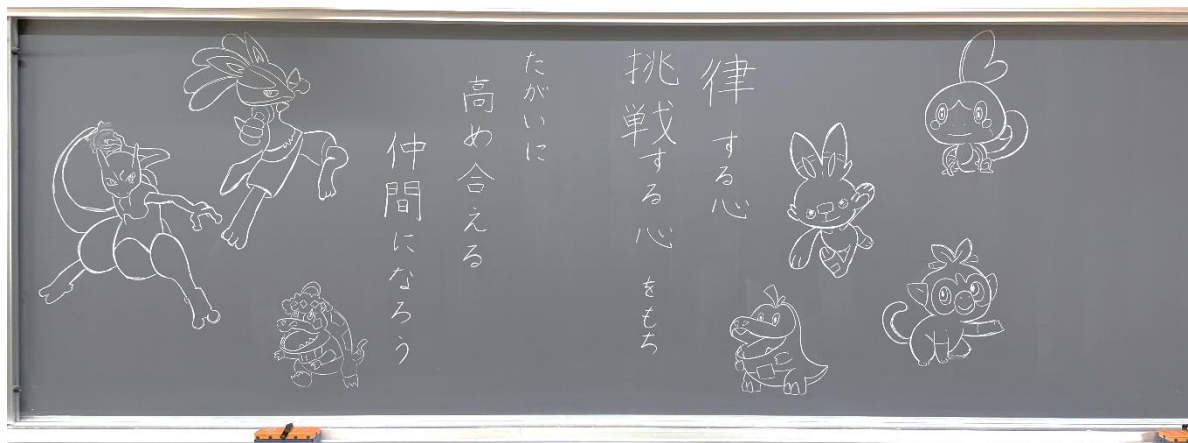 律する心
挑戦する心をもち
たがいに
高め合える
仲間になろう